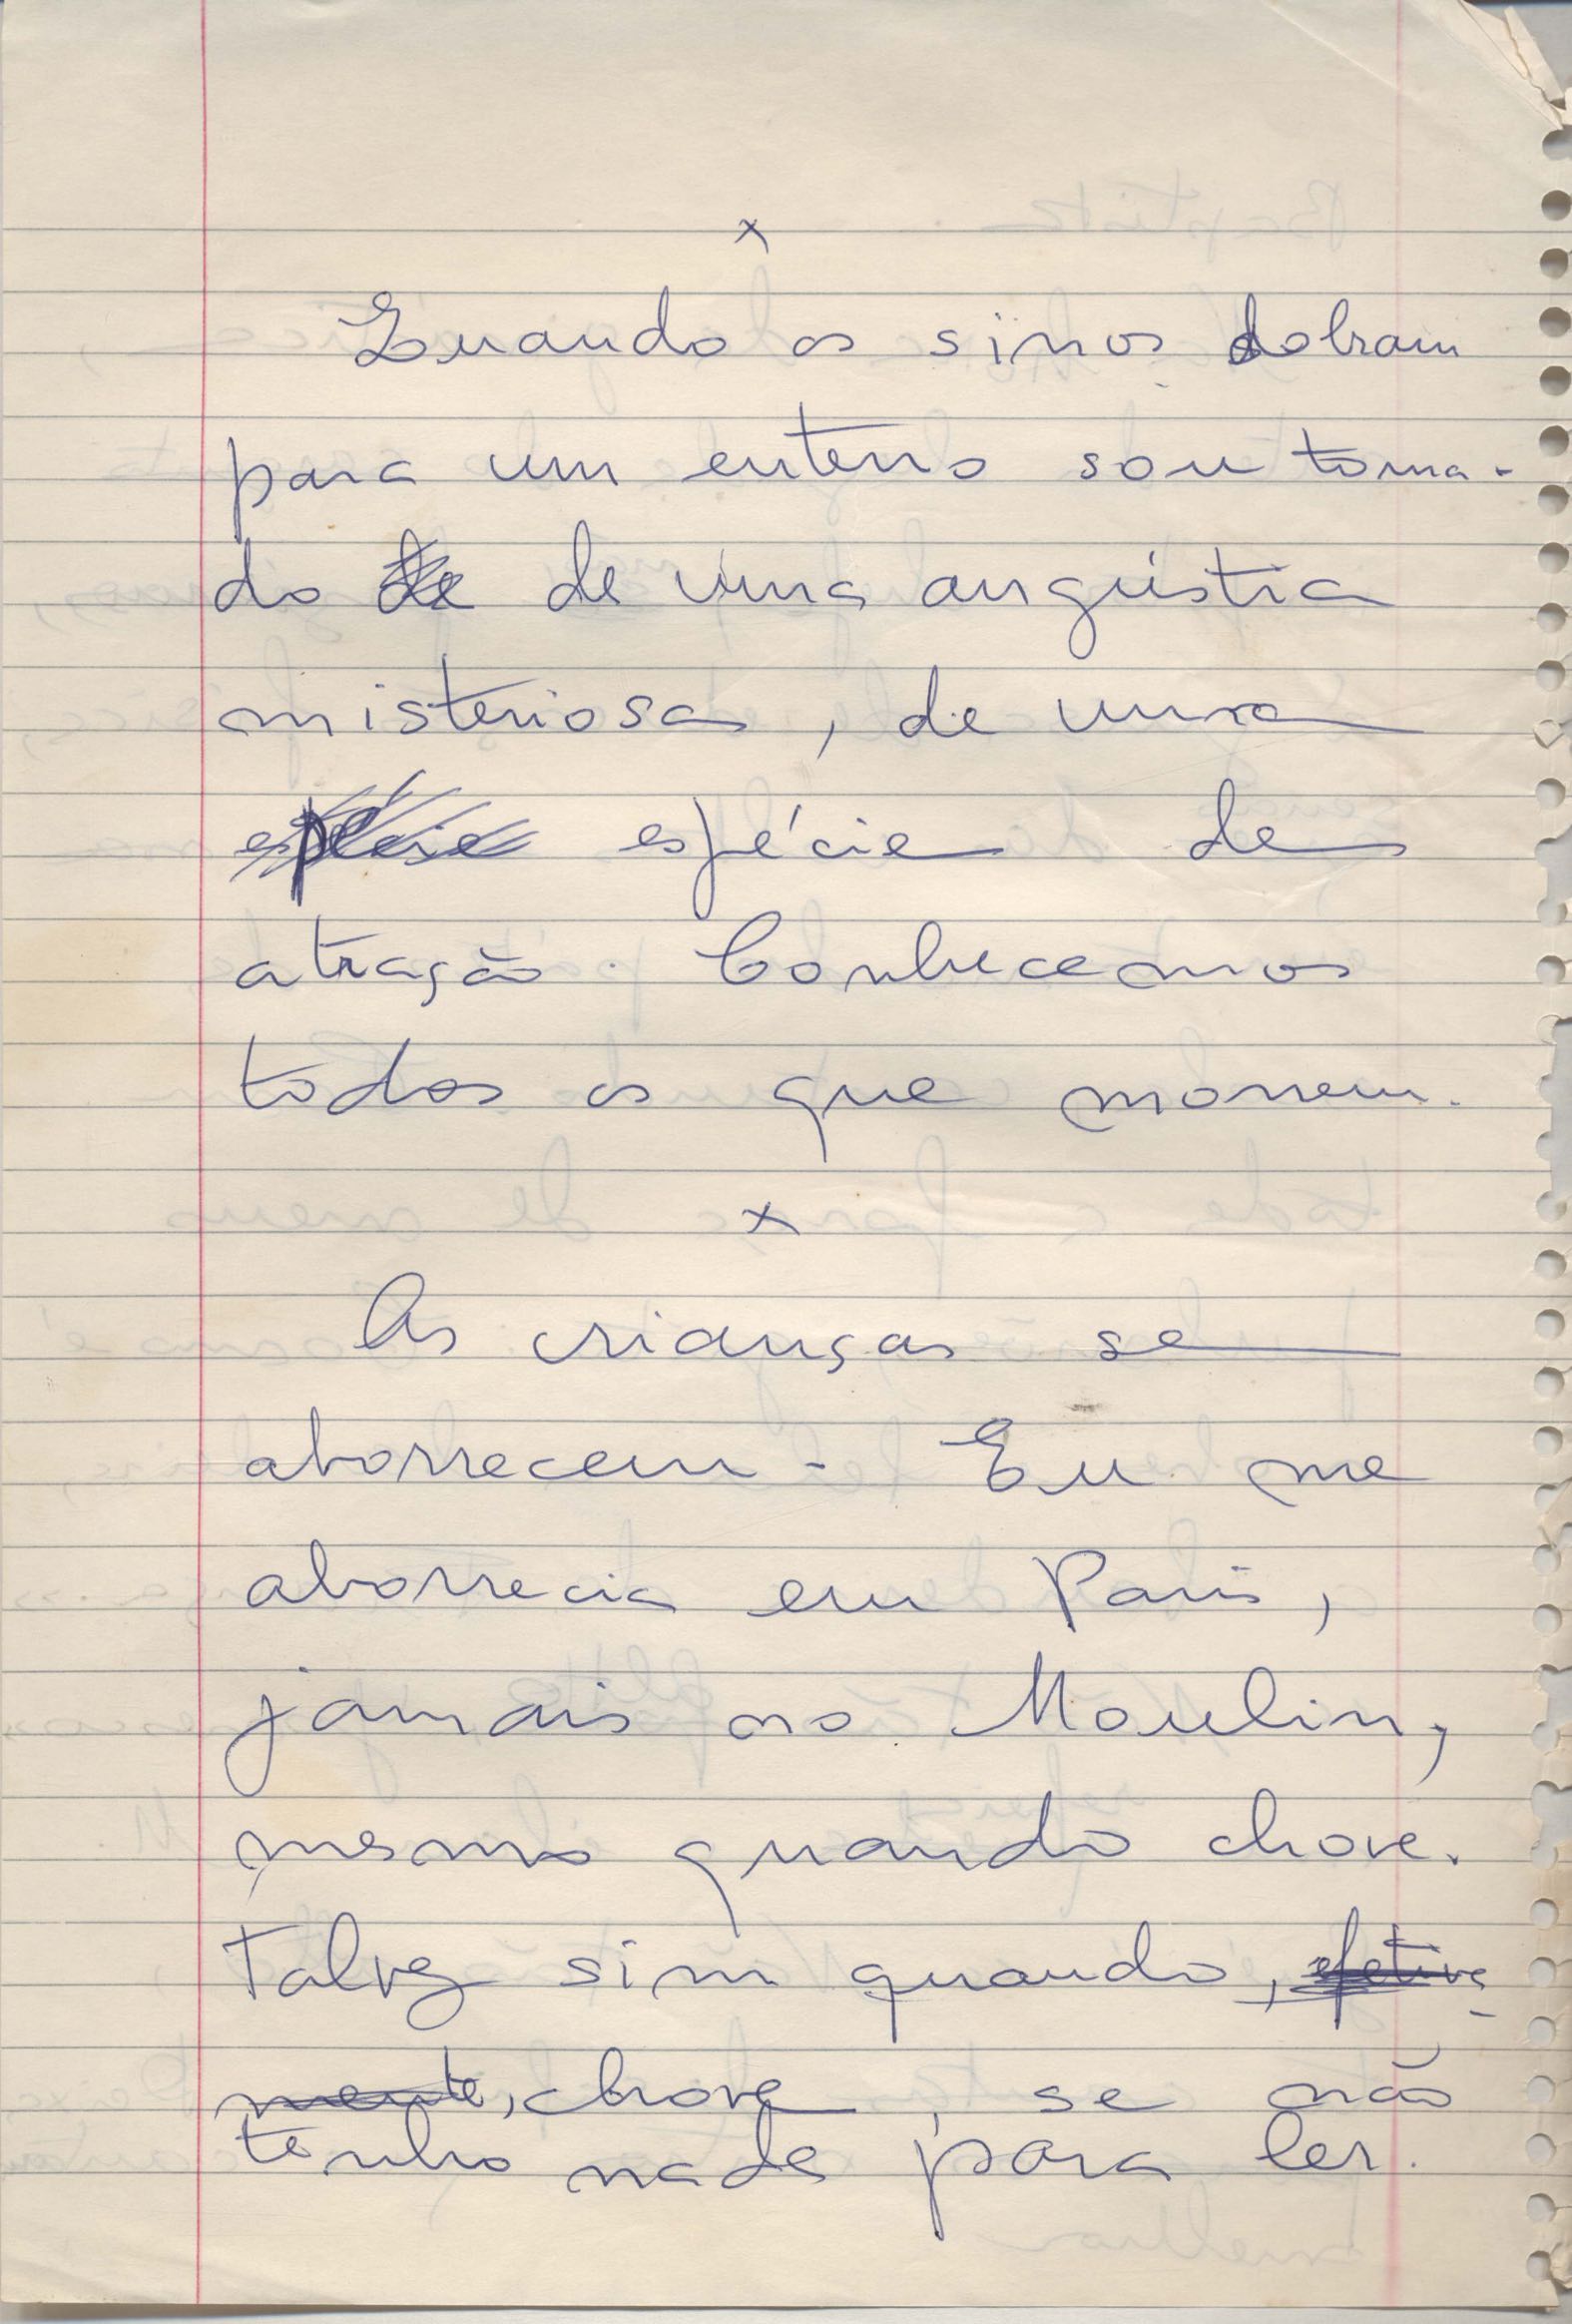 x
Quando os sinos dobram
para um enterro sou toma-
do de de uma angústia
misteriosa, de uma
espécie espécie de
atração. Conhecemos
todos os que morrem.
x
As crianças se
aborrecem. Eu me
aborrecia em Paris,
jamais no Moulin,
mesmo quando chove.
Talvez sim quando, efetiva-
mente, chove, se não
tenho nada para ler.